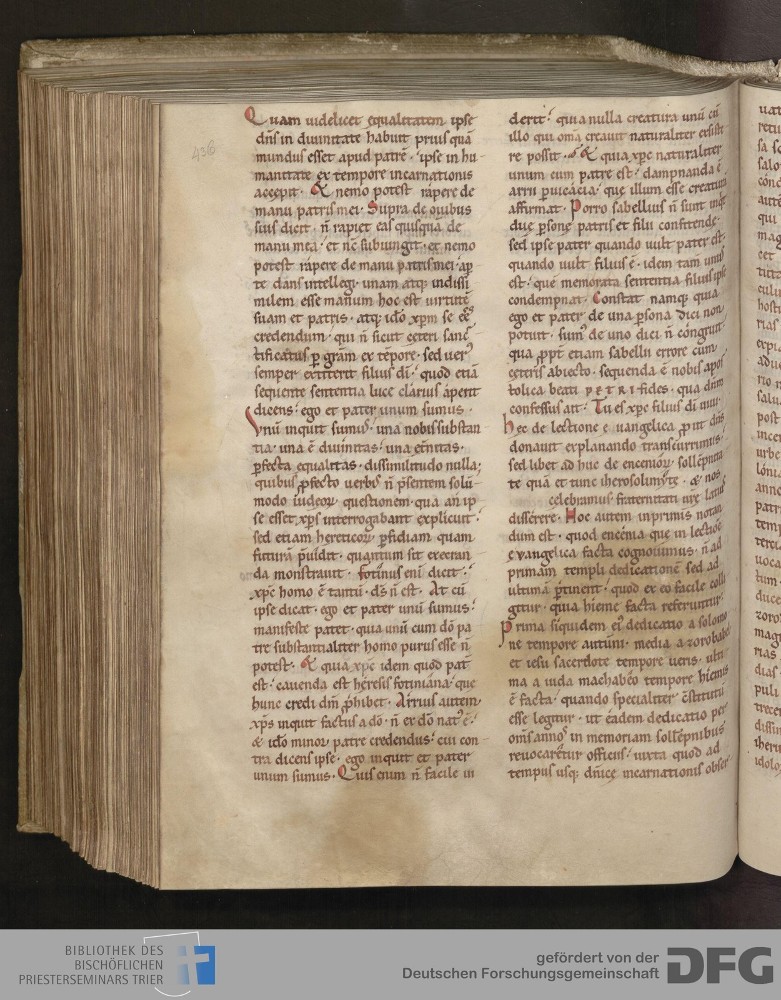 436
Quam uidelicet equalitatem ipse
dñs in diuinitate habuit prius quã
mundus esset apud patrẽ · ipse in hu-
manitate ex tempore incarnationis
accepit · Et nemo potest rapere de
manu patris mei · Supra de ouibus
suis dicit · ñ rapiet eas quisquã de
manu mea · et nc̃ subiungit · et nemo
potest rapere de manu patris mei · ap
te dans intellegi · unam atq; indissi
milem esse manum hoc est uirtutẽ
suam et patris · atq; ido xpm se eẽ
credendum · qui ñ sicut ceteri sanc
tificatus p grãm ex tẽpore · sed uer
semper extiterit filius di · quod etiã
sequente sententia luce clarius aperit
dicens · ego et pater unum sumus ·
Vnũ inquit sumus · una nobis substan
tia · una ẽ diuinitas · una etnitas ·
pfecta equalitas · dissimilitudo nulla;
quibus pfecto uerbis ñ psentem solũ
modo iudeor questionem · qua añ ip
se esset xps interrogabant explicuit ·
sed etiam hereticor pfidiam quam
futurã puidit · quantum sit execran
da monstrauit · Fotinus eni dicit ·
xpc homo ẽ tantũ · ds ñ est · At cũ
ipse dicat · ego et pater unũ sumus ·
manifeste patet · quia unũ cum dõ pa
tre substantialiter homo purus esse ñ
potest · Et quia xpc idem quod pat
est · cauenda est heresis fotiniana · que
hunc credi dm phibet · Arrius autem
xps inquit factus a dõ · ñ ex dõ nat ẽ ·
& ido minor patre credendus · cui con
tra dicens ipse · ego inquit et pater
unum sumus · Quis enim ñ facile ui
derit · quia nulla creatura unũ cũ
illo qui oma creauit naturaliter existe
re possit · Et quia xpc naturaliter
unum cum patre est · dampnanda ẽ
arrii puicacia · que illum esse creaturã
affirmat · Porro sabellius ñ sunt inqt
due psone patris et filii confitende ·
sed ipse pater quando uult pater est ·
quando uult filius ẽ · idem tam unus
est · que memorata sententia filius ipse
condempnat · Constat namq; quia
ego et pater de una psona dici non
potuit · sum de uno dici ñ congruit ·
qua ppt etiam sabellii errore cum
ceteris abiecto · sequenda ẽ nobis apos
tolica beati PETRI fides · qua dñm
confessus ait · Tu es xpc filius di uiui ·
hec de lectione euangelica put dns
donauit explanando transcurrimus ·
sed libet ad huc de encenior sollẽpnita
te quã et tunc iherosolimite · & nos
celebramus fraternitati urẽ latius
disserere · Hoc autem inprimis notan
dum est · quod encenia que in lectiõe
euangelica facta cognouimus · ñ ad
primam templi dedicationẽ sed ad
ultimã ptinent · quod ex eo facile colli
gitur · quia hieme facta referuntur ·
Prima siquidem ei dedicatio a salomo
ne tempore autũni · media a zorobabel
et iesu sacerdote tempore ueris · ulti
ma a iuda machabeo tempore hiemis
ẽ facta · quando specialiter cstitutũ
esse legitur · ut eadem dedicatio per
oms annos in memoriam sollẽpnibus
reuocaretur officiis · iuxta quod ad
tempus usq; dnice incarnationis obser
BIBLIOTHEK DES
BISCHÖFLICHEN
PRIESTERSEMINARS TRIER
gefördert von der
Deutschen Forschungsgemeinschaft
DFG